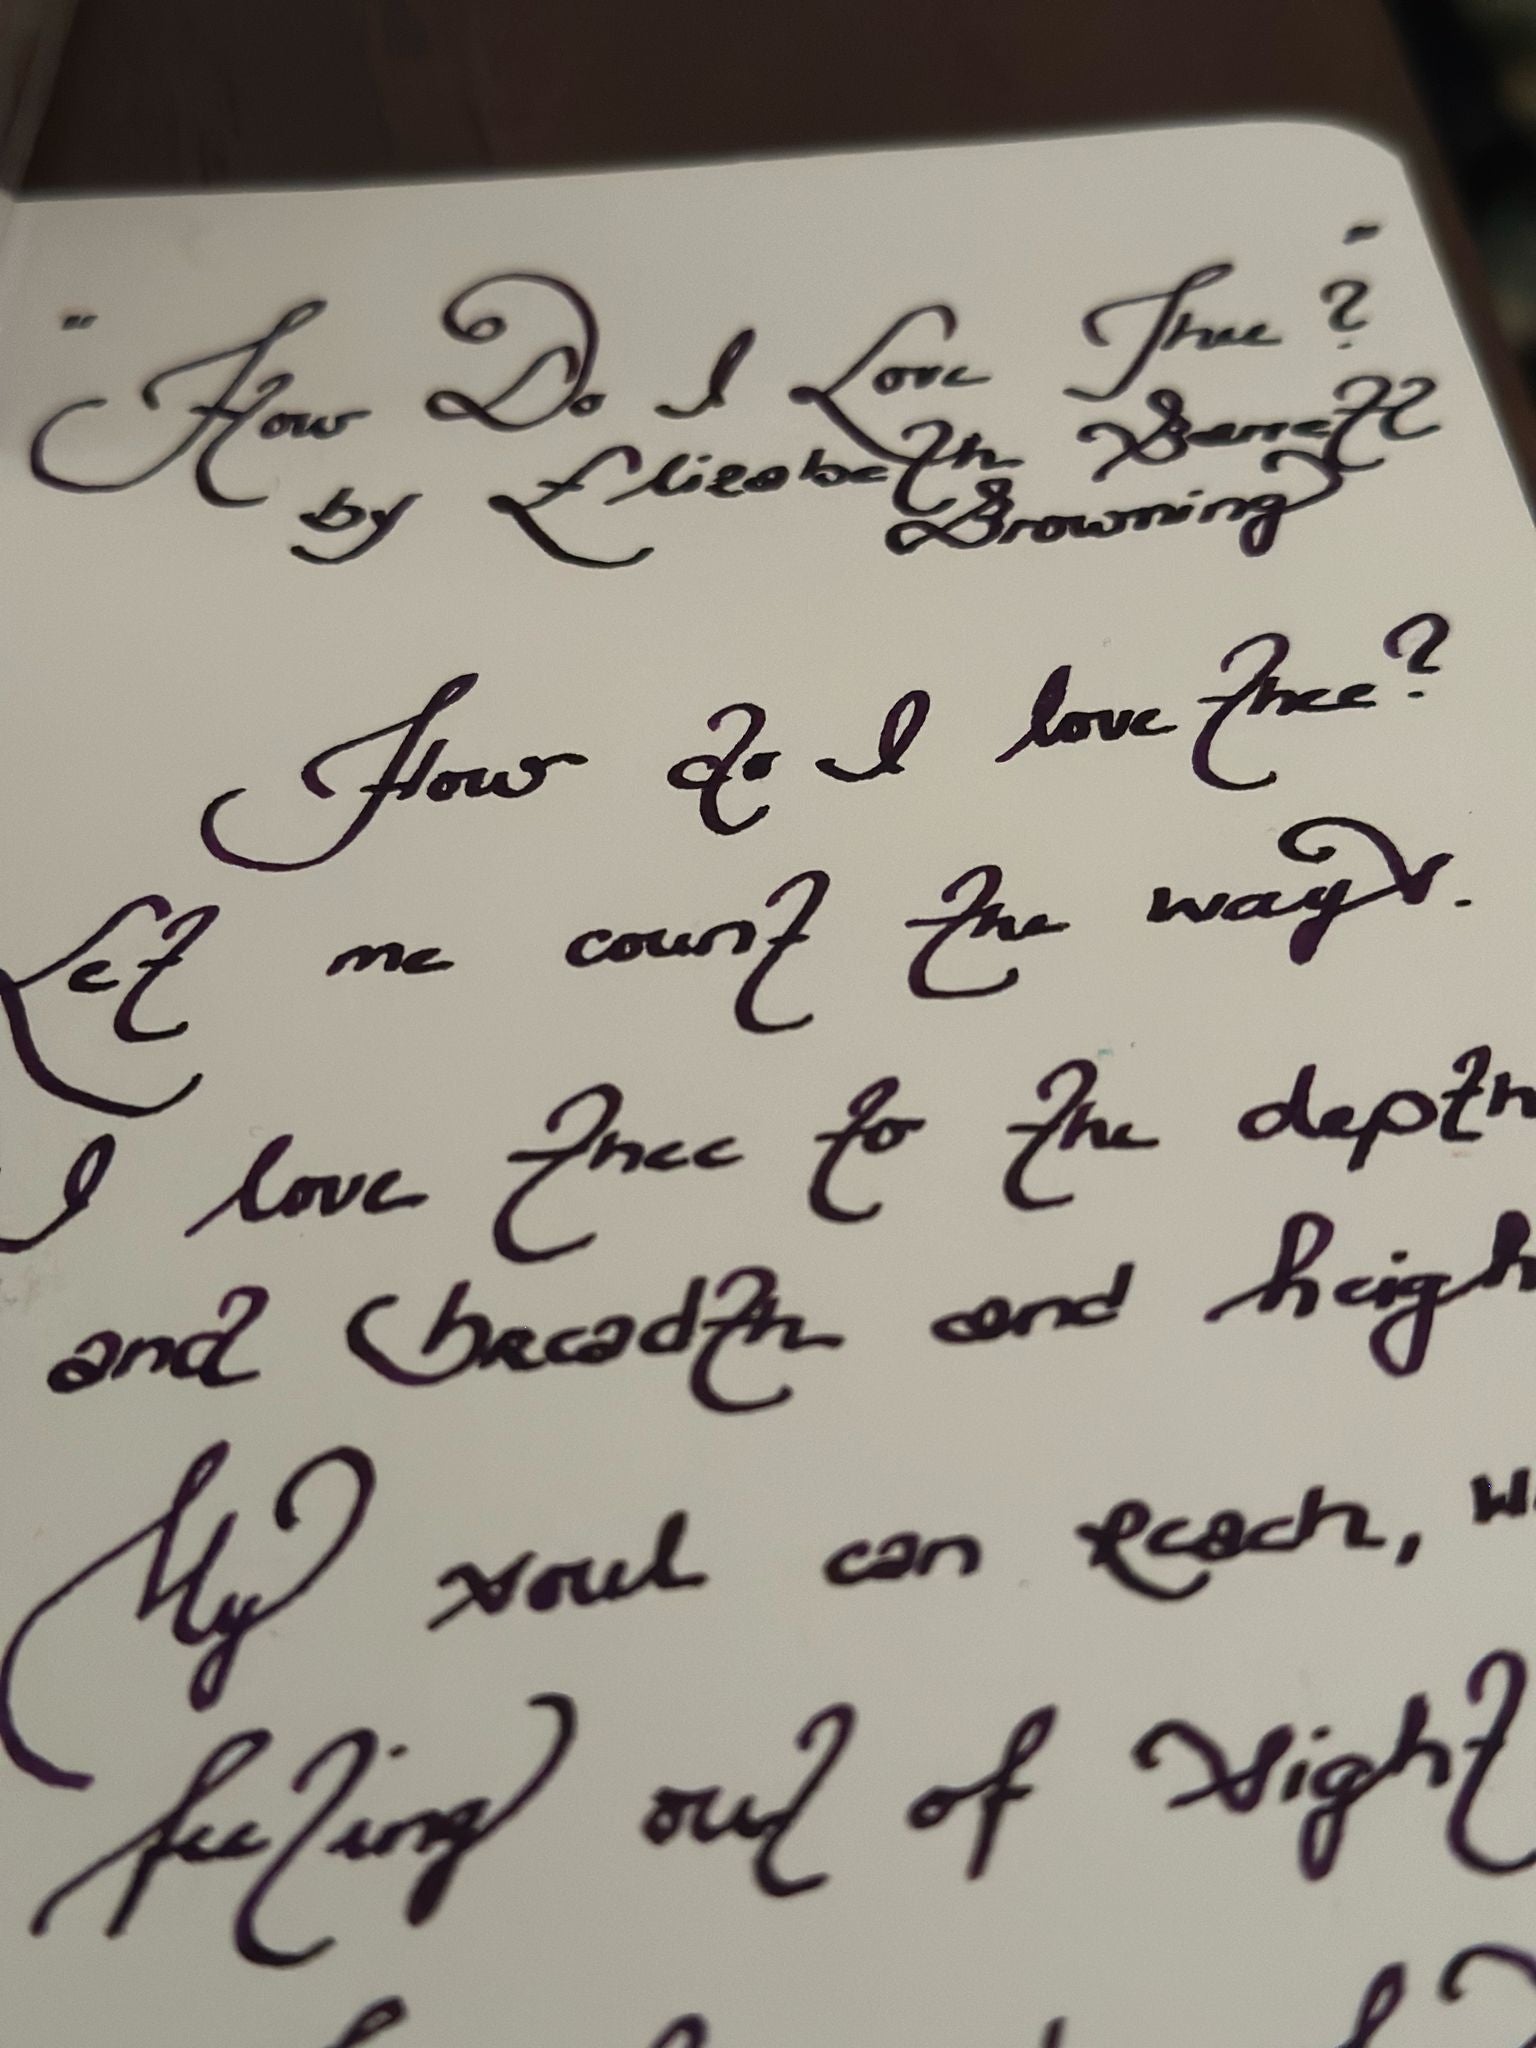 "How Do I Love Thee?"
by Elizabeth Barrett
Browning
How do I love thee?
Let me count the ways.
I love thee to the depth
and breadth and heigh
My soul can reach, w
feeling out of sight